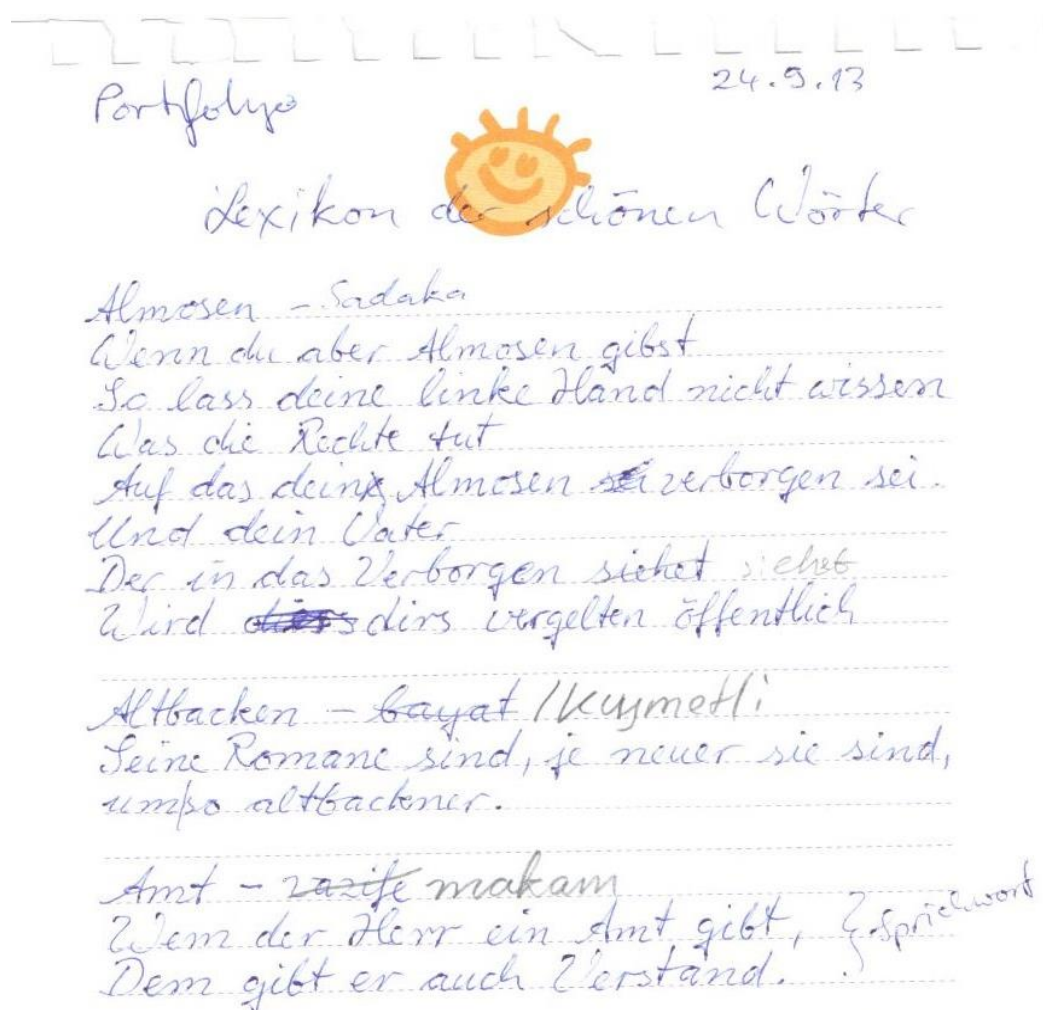 Portfolyo
24.9.13
Lexikon der schönen Wörter
Almosen - Sadaka
Wenn du aber Almosen gibst
So lass deine linke Hand nicht wissen
Was die Rechte tut
Auf das dein Almosen verborgen sei.
Und dein Vater
Der in das Verborgen siehet siehet
Wird dirs vergelten öffentlich
Altbacken - bayat / Kıymetli
Seine Romane sind, je neuer sie sind,
umso altbackener.
Amt - vazife makam
Wem der Herr ein Amt gibt, } Sprichwort
Dem gibt er auch Verstand.